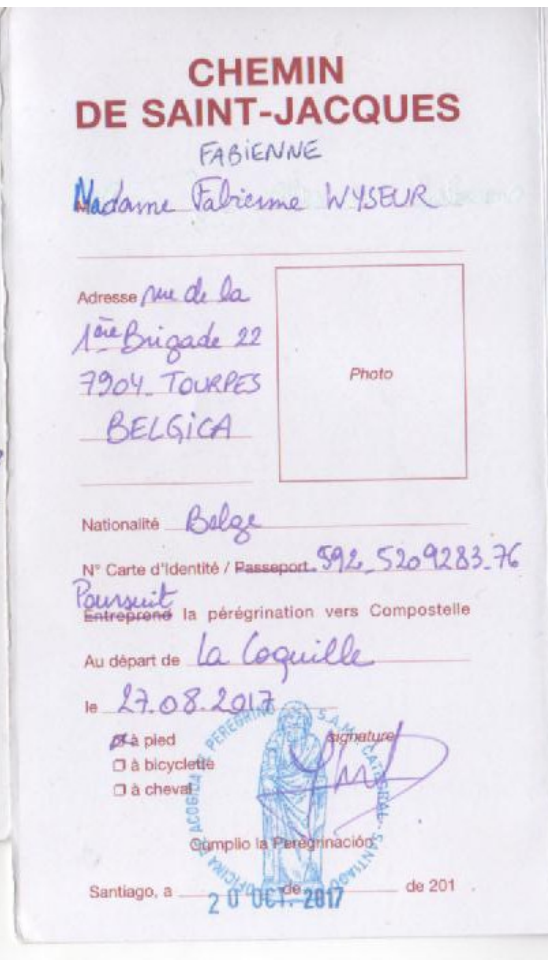 CHEMIN
DE SAINT-JACQUES
FABIENNE
Madame Fabienne WYSEUR
Adresse rue de la
1ère Brigade 22
7904 TOURPES
BELGICA
Photo
Nationalité Belge
N° Carte d'Identité / Passeport 592_5209283_76
Poursuit
Entreprend la pérégrination vers Compostelle
Au départ de La Coquille
le 27.08.2017
à pied
signature
à bicyclette
à cheval
OFICINA DE ACOGIDA DE PEREGRINOS S.A.M.I. CATEDRAL - SANTIAGO
Cumplio la Peregrinación
Santiago, a de de 201 .
20 OCT. 2017